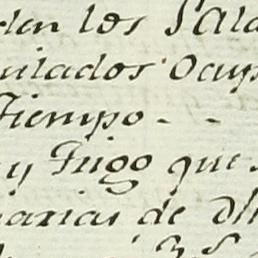 den los Sala
ulados Ocup
Tiempo - -
y Trigo que
narias de dh